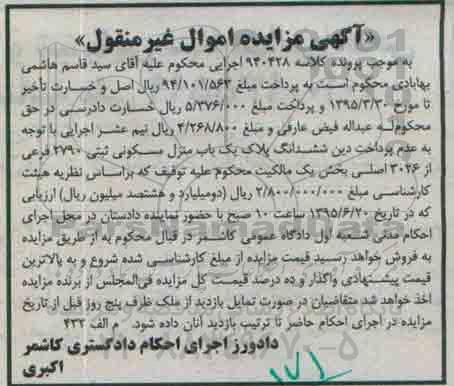 «آگهی مزایده اموال غیرمنقول»
به موجب پرونده کلاسه ۹۴۰۴۲۸ اجرایی محکوم علیه آقای سید قاسم هاشمی
بهابادی محکوم است به پرداخت مبلغ ۹۴/۱۰۱/۵۶۳ ریال اصل و خسارت تأخیر
تا مورخ ۱۳۹۵/۳/۳۰ و پرداخت مبلغ ۵/۳۷۶/۰۰۰ ریال خسارت دادرسی در حق
محکوم‌له عبداله فیض عارفی و مبلغ ۴/۲۶۸/۸۰۰ ریال نیم عشر اجرایی با توجه
به عدم پرداخت دین ششدانگ پلاک یک باب منزل مسکونی ثبتی ۲۷۹۰ فرعی
از ۳۰۲۶ اصلی بخش یک مالکیت محکوم علیه توقیف که براساس نظریه هیئت
کارشناسی مبلغ ۲/۸۰۰/۰۰۰/۰۰۰ ریال (دومیلیارد و هشتصد میلیون ریال) ارزیابی
که در تاریخ ۱۳۹۵/۶/۲۰ ساعت ۱۰ صبح با حضور نماینده دادستان در محل اجرای
احکام مدنی شعبه اول دادگاه عمومی کاشمر در قبال محکوم به از طریق مزایده
به فروش خواهد رسید قیمت مزایده از مبلغ کارشناسی شده شروع و به بالاترین
قیمت پیشنهادی واگذار و ده درصد قیمت کل مزایده فی‌المجلس از برنده مزایده
اخذ خواهد شد متقاضیان در صورت تمایل بازدید از ملک ظرف پنج روز قبل از تاریخ
مزایده در اجرای احکام حاضر تا ترتیب بازدید آنان داده شود. م الف ۴۳۲
دادورز اجرای احکام دادگستری کاشمر
اکبری